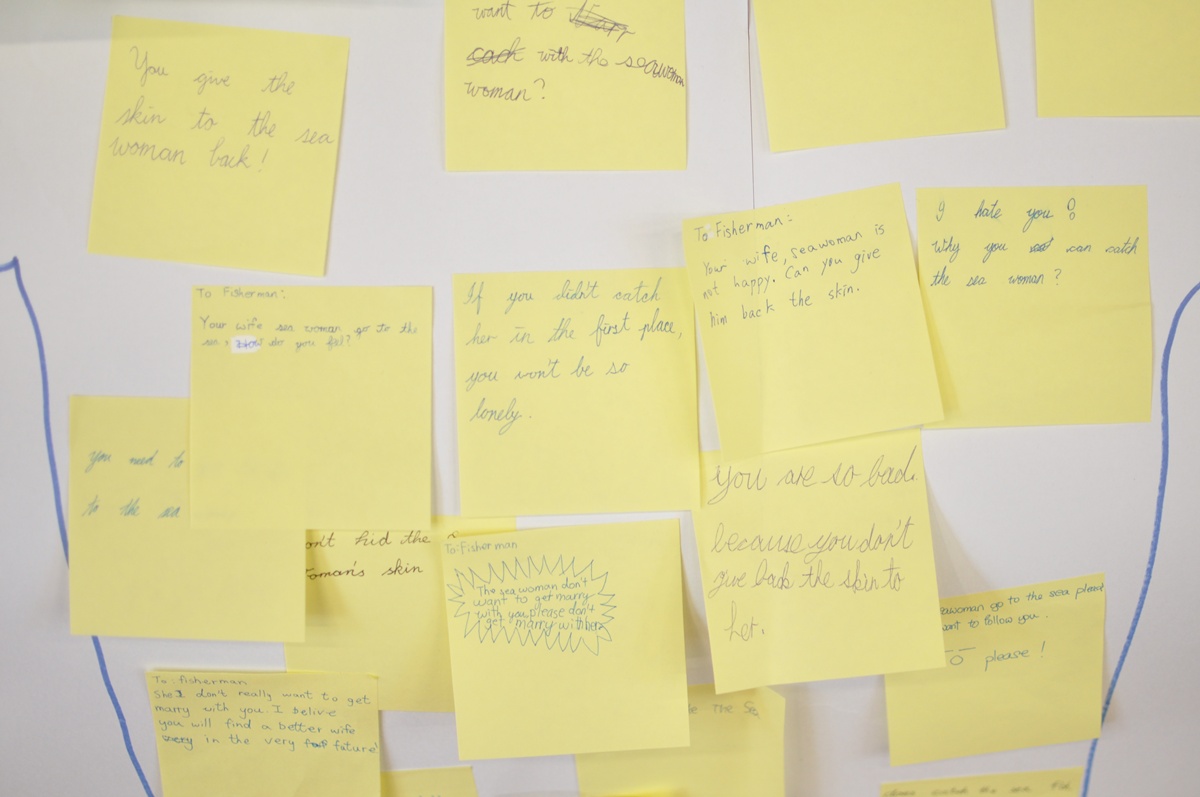 You give the
skin to the sea
woman back!
want to
with the seawoman
woman?
To Fisherman:
Your wife, seawoman is
not happy. Can you give
him back the skin.
I hate you!
Why you can catch
the sea woman?
To Fisherman:
Your wife sea woman go to the
sea, How do you fel?
If you didn't catch
her in the first place,
you won't be so
lonely.
you need to
to the sea
on't hid the
oman's skin
To:Fisherman
The sea woman don't
want to get marry
with you, please don't
get marry with her
You are so bad.
because you don't
give back the skin to
her.
eawoman go to the sea please
want to follow you.
please!
To: fisherman
She don't really want to get
marry with you I belive
you will find a better wife
in the very future
e The Se